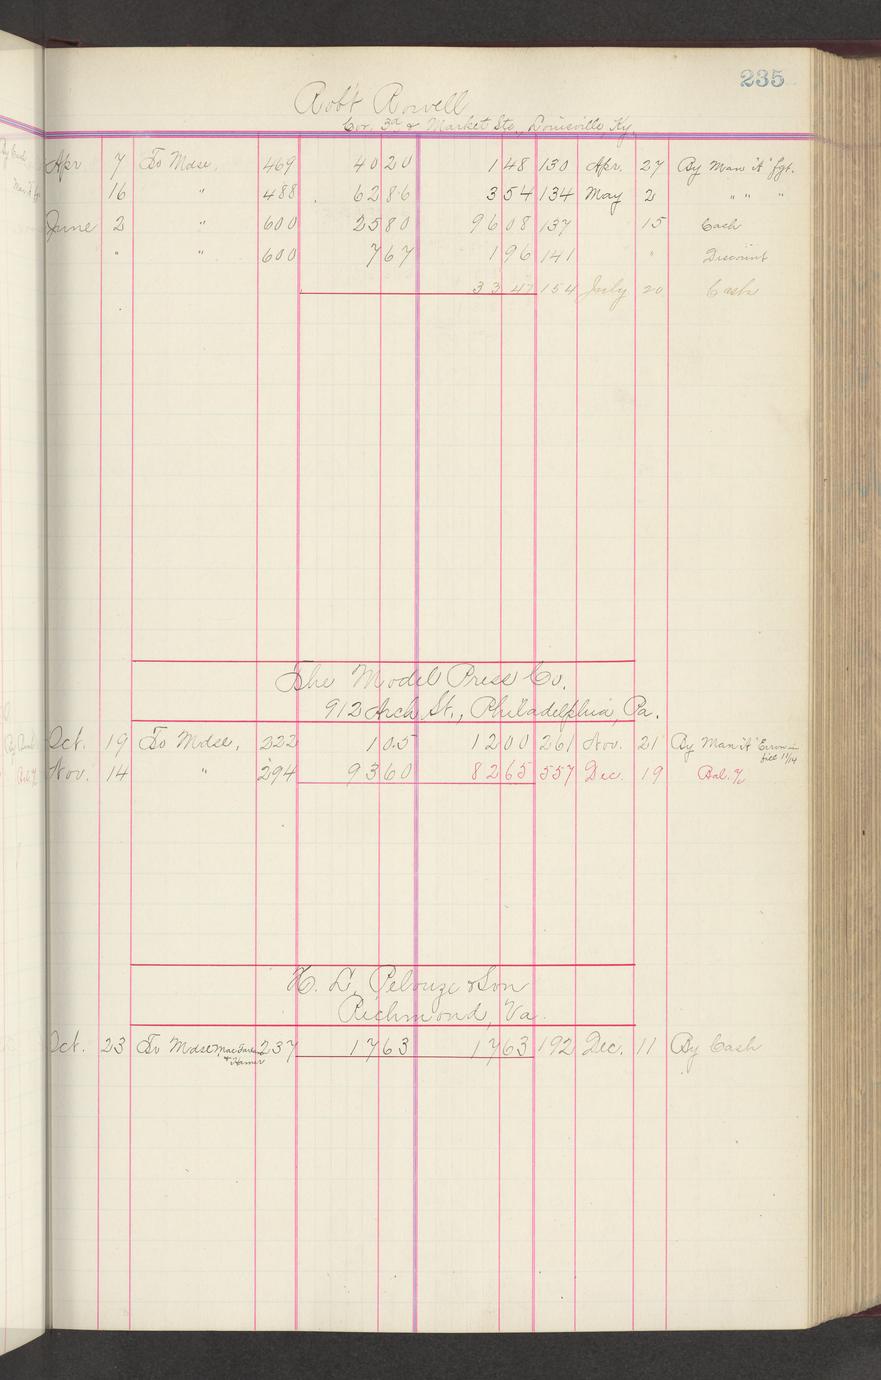 235
Rob't Rowell
Cor. 3d & Market Sts., Louisville Ky.
Apr 7 To Mdse. 469 40 20 1 48 130 Apr. 27 By Man'it' fgt.
16 " 488 62 86 3 54 134 May 2 " " "
June 2 " 600 25 80 96 08 137 15 Cash
" " 600 7 67 1 96 141 " Discount
33 47 154 July 20 Cash
The Model Press Co.
912 Arch St., Philadelphia, Pa.
Oct. 19 To Mdse, 222 1 05 12 00 261 Nov. 21 By Man'it' Error in
bill 11/14
Nov. 14 " 294 93 60 82 65 557 Dec. 19 Bal. %
H. L. Pelouze & Son
Richmond, Va.
Oct. 23 To Mdse 237 17 63 17 63 192 Dec. 11 By Cash